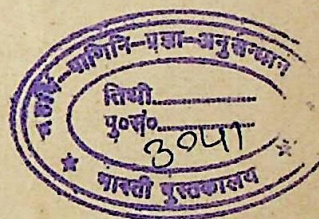 पाणिनि-प्रज्ञा-अनुसन्धान
तिथी..............
पु०सं०..............
3041
भारती पुस्तकालय